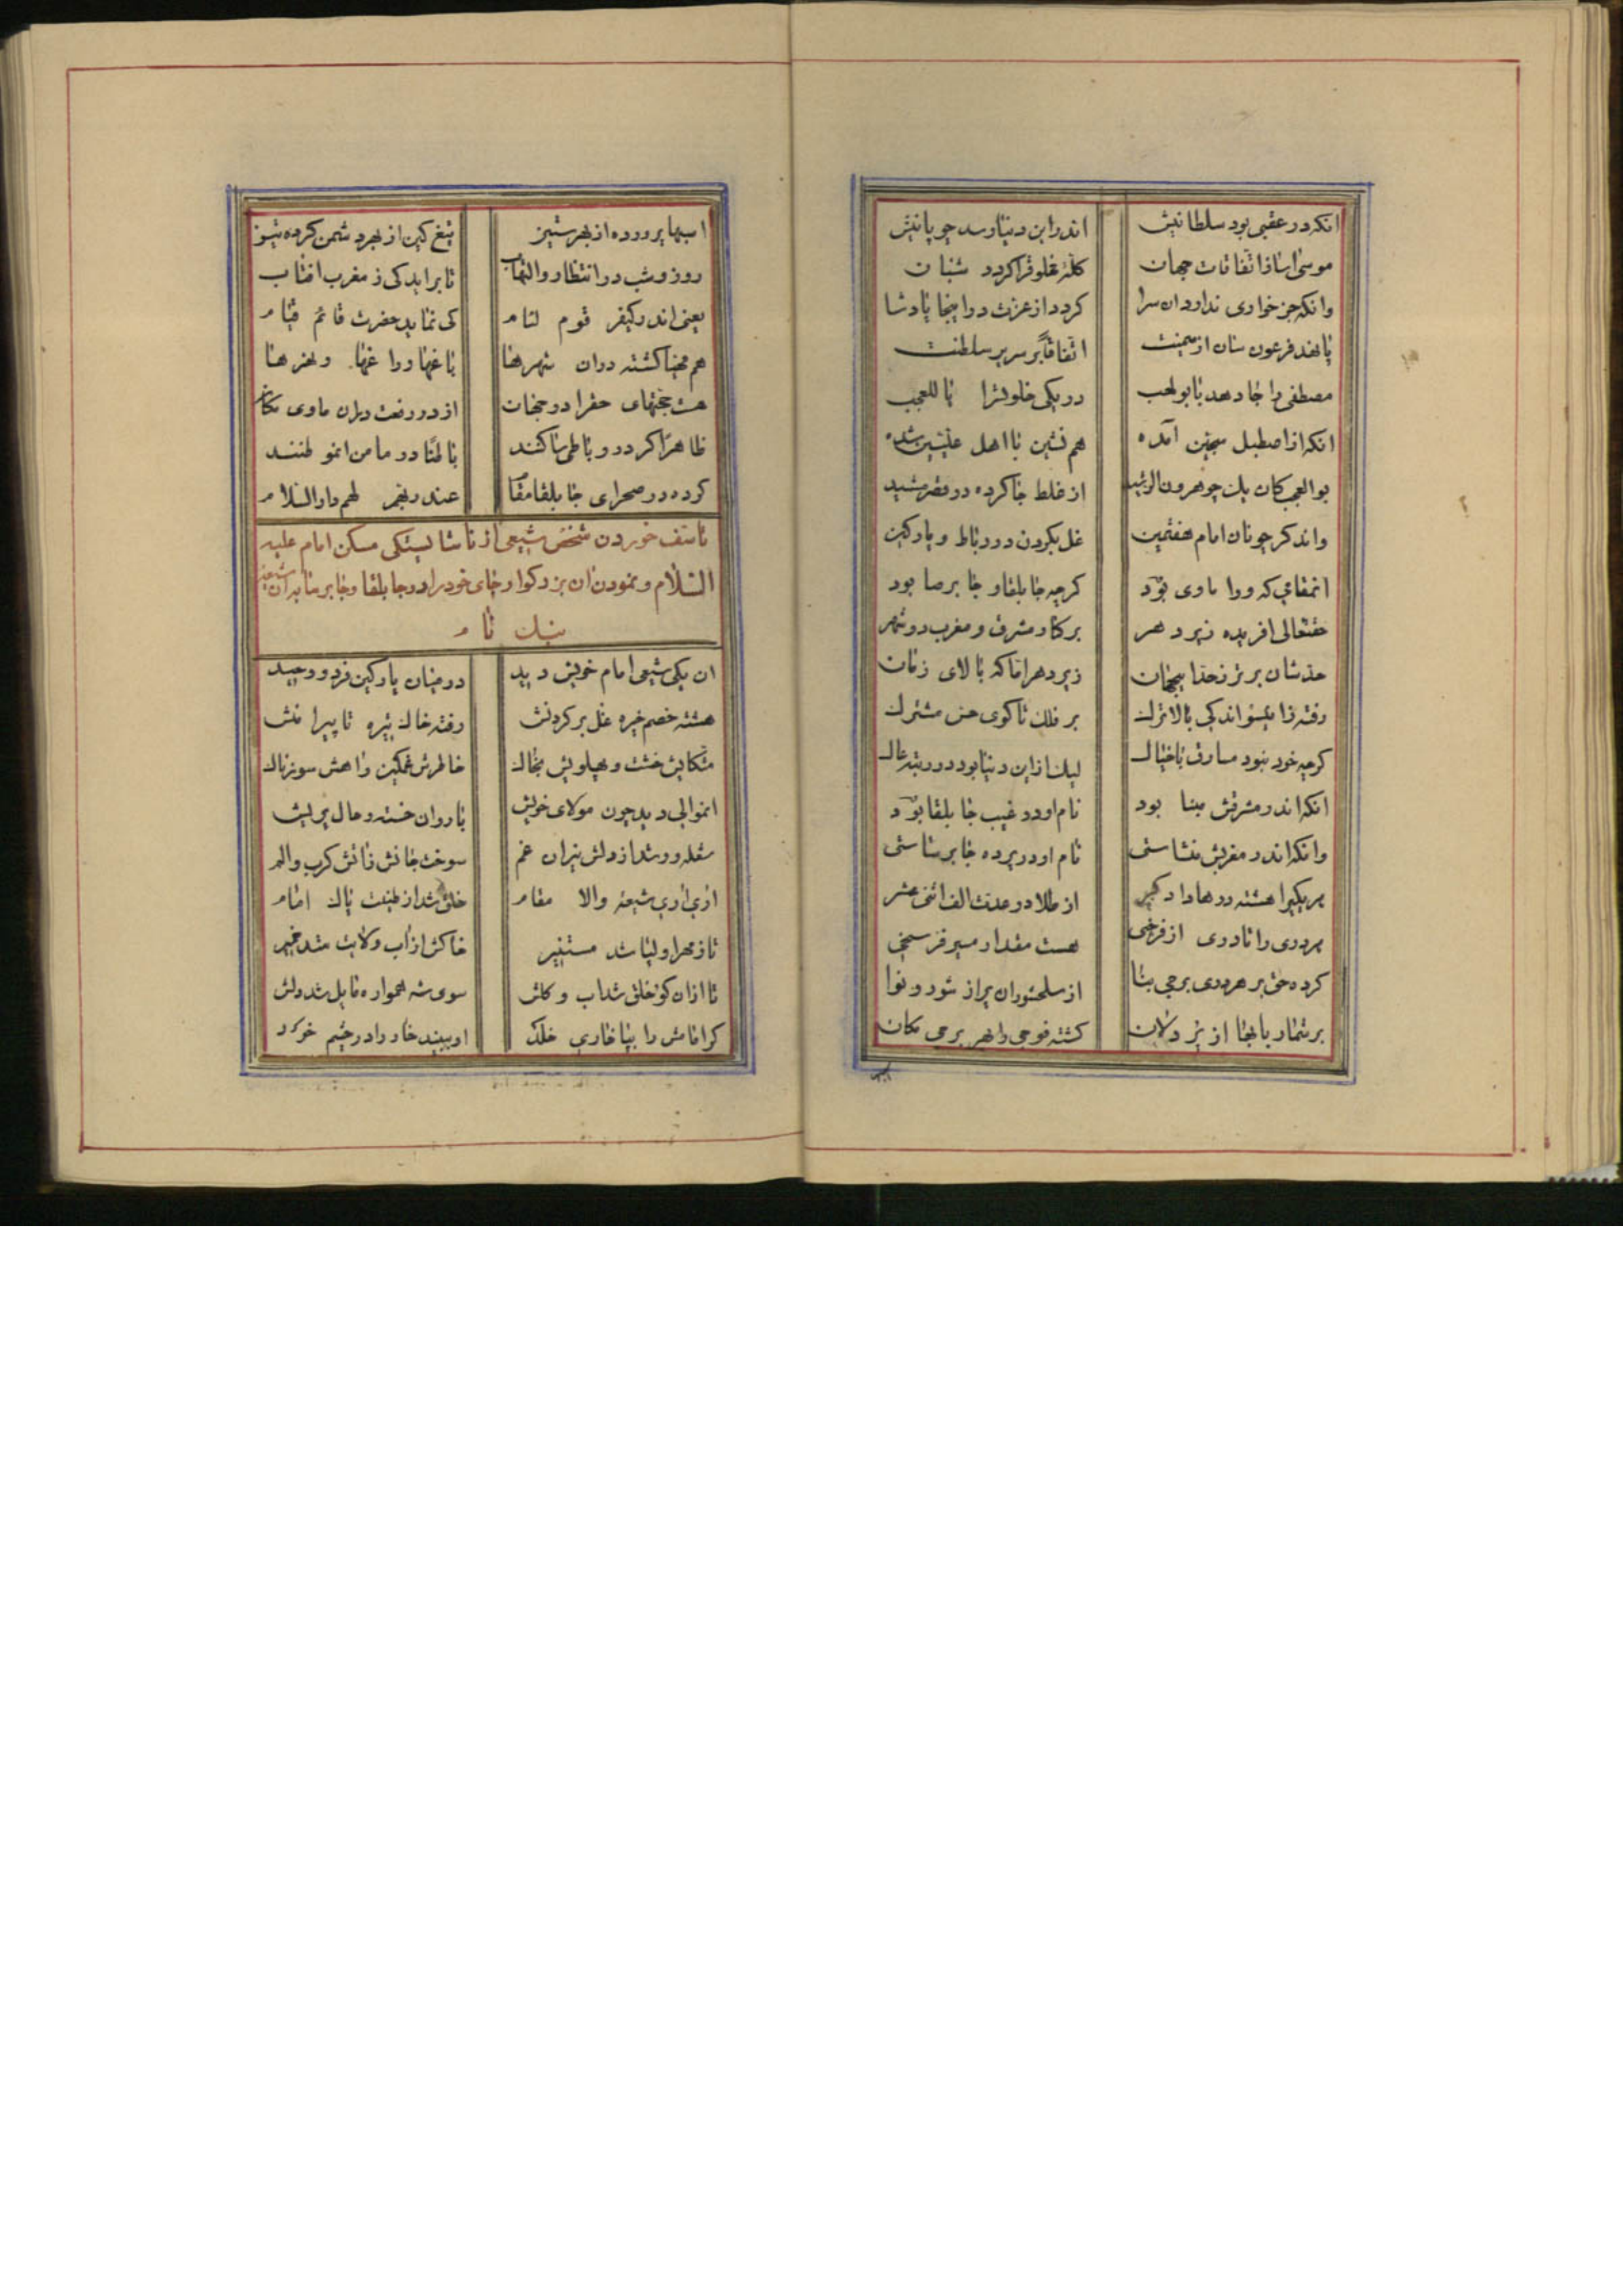 انکه در عقبی بود سلطانیش اندر این دنیا رسد چوپانیش
موسی اسا ز اتفاقات جهان کلهٔ مخلوق را کردد شبان
وانکه جز خواری ندارد ان سرا کردد از عزت در اینجا پادشا
پا نهد فرعون سان از میمنت اتفاقاً بر سریر سلطنت
مصطفی را جا دهد با بولهب در یکی خلوتسرا یا للعجب
انکه از اصطبل سجین آمده هم نشین با اهل علیین شده
بوالعجب کان یک چو هرون الرشید از غلط جا کرده در قصر مشید
واندکر چونان امام هفتمین غل بکردن در رباط و پارکین
انمقامی که ورا ماوی بود کرچه جابلقا و جابرصا بود
حقتعالی افریده زیر دهر بر کنار مشرق و مغرب دو شهر
حدشان برتر ز حد اینجهان زیر دهر اما که بالای زمان
رفته زاینسو اندکی بالاترک بر فلک تا کوی حس مشترک
کرچه خود نبود مساوق با خیال لیک از این دنیا بود در رتبه عال
انکه اندر مشرقش مبنا بود نام او در غیب جابلقا بود
وانکه اندر مغربش منشاستی نام او در پرده جابرساستی
هر یکیرا هشته درها دادکر از طلا در عدت الف اثنی عشر
هر دری را تا دری از فرخی هست مقدار مسیر فرسخی
کرده حق بر هر دری برجی بنا از سلحشوران پر از شور و نوا
بر شمار بابها از پر دلان کشته فوجی را بهر برجی مکان
اسبها پرورده از بهر ستیز تیغ کین از بهر دشمن کرده تیز
روز و شب در انتظار و التهاب تا براید کی ز مغرب افتاب
یعنی اندر کیفر قوم لئام کی نماید حضرت قائم قیام
هم مهیا کشته در ان شهرها باغها و راغها و نهرها
هست حجتهای حقرا در جهان از در رفعت در ان ماوی مکان
ظاهراً کر در رباطی ساکنند باطناً در مامن انمو طنند
کرده در صحرای جابلقا مقام عند ربهم لهم دار السلام
تاسف خوردن شخص شیعی از ناشایستکی مسکن امام علیه
السلام و نمودن ان بزرکوار جای خود را در جابلقا و جابرسا بدان شیعهٔ
نیک نام
ان یکی شیعی امام خویش دید در میان پارکین فرد و وحید
هشته خصم خیره غل بر کردنش رفته خاک تیره تا پیرامنش
متکایش خشت و پهلویش بخاک خاطرش غمکین و اهش سوزناک
انموالی دید چون مولای خویش با روان خسته و حال پریش
شعله ور شد از دلش نیران غم سوخت جانش ز اتش کرب و الم
اری اری شیعهٔ والا مقام خلق شد از طینت پاک امام
تا ز مهر اولیا شد مستنیر خاکش از آب ولایت شد خمیر
تا از ان کو خلق شد اب و کلش سوی شه همواره مایل شد دلش
کر امامش را بپا خاری خلد او ببیند خار را در چشم خود